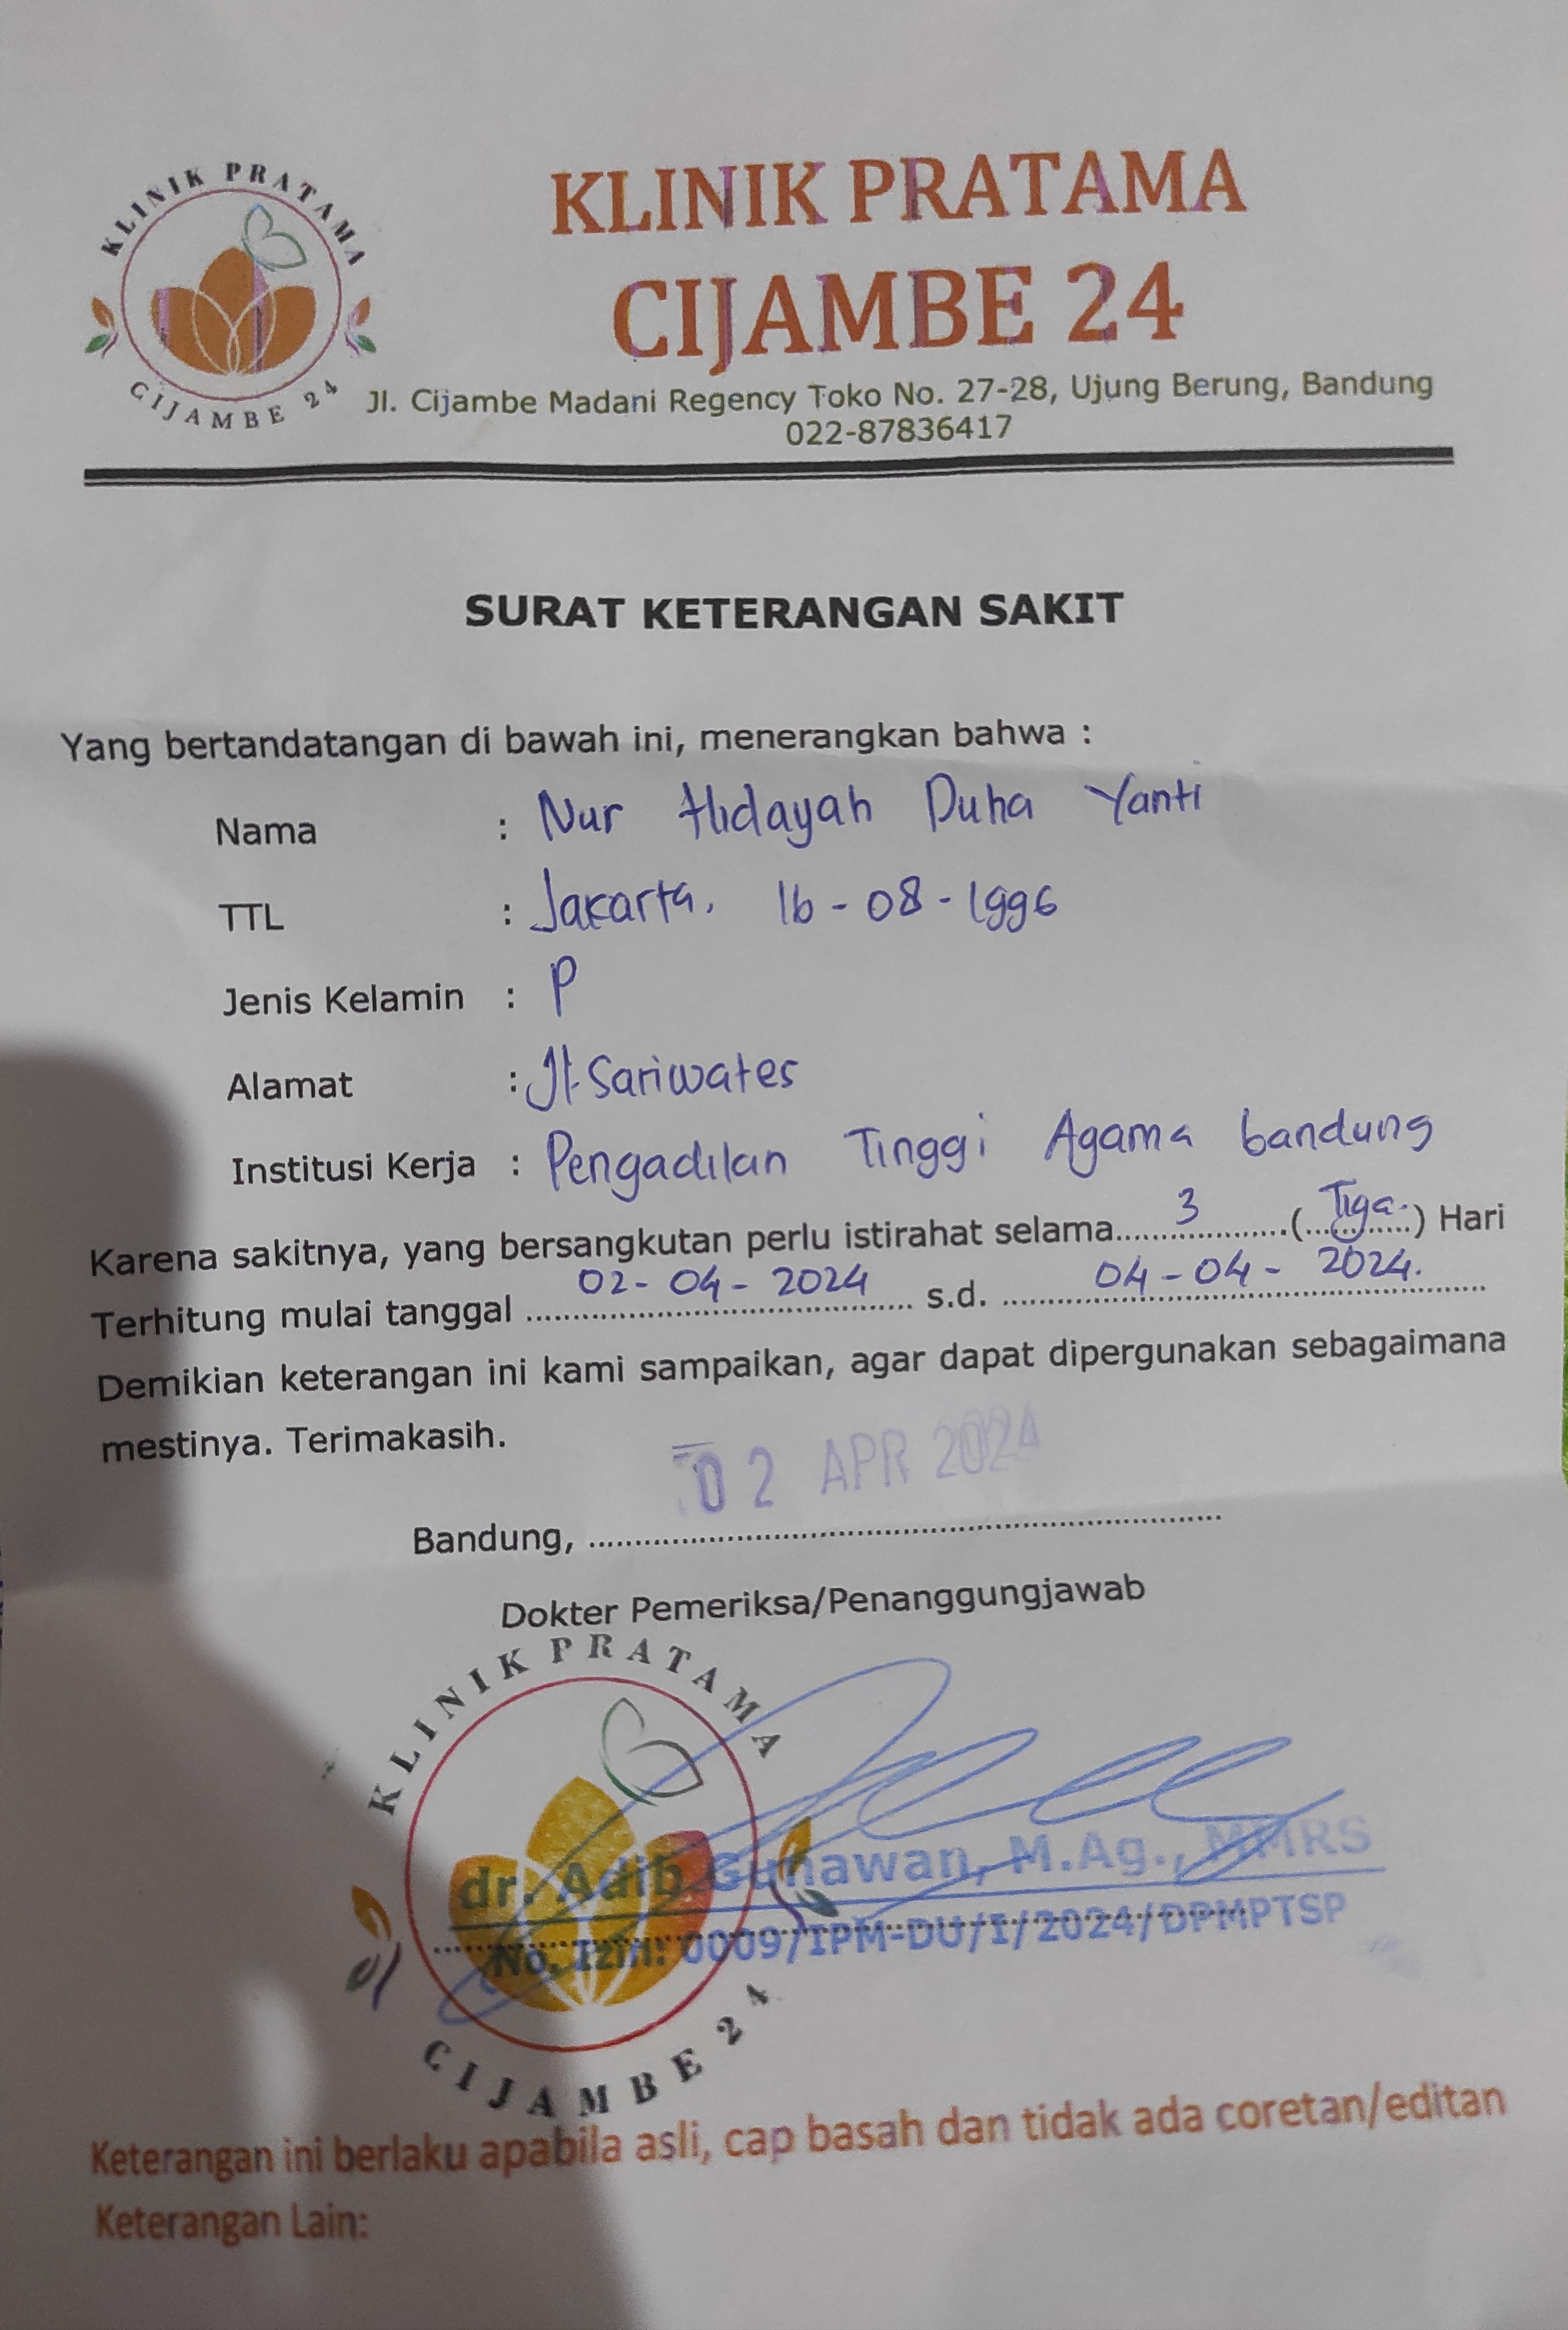 KLINIK PRATAMA
CIJAMBE 24
KLINIK PRATAMA
CIJAMBE 24
Jl. Cijambe Madani Regency Toko No. 27-28, Ujung Berung, Bandung
022-87836417
SURAT KETERANGAN SAKIT
Yang bertandatangan di bawah ini, menerangkan bahwa :
Nama : Nur Hidayah Duha Yanti
TTL : Jakarta, 16-08-1996
Jenis Kelamin : P
Alamat : Jl. Sariwates
Institusi Kerja : Pengadilan Tinggi Agama bandung
Karena sakitnya, yang bersangkutan perlu istirahat selama 3 (Tiga) Hari
Terhitung mulai tanggal 02-04-2024 s.d. 04-04-2024.
Demikian keterangan ini kami sampaikan, agar dapat dipergunakan sebagaimana
mestinya. Terimakasih.
Bandung, 02 APR 2024
Dokter Pemeriksa/Penanggungjawab
KLINIK PRATAMA
dr. Adib Gunawan, M.Ag., MMRS
No. Izin: 0009/IPM-DU/I/2024/DPMPTSP
CIJAMBE 24
Keterangan ini berlaku apabila asli, cap basah dan tidak ada coretan/editan
Keterangan Lain: